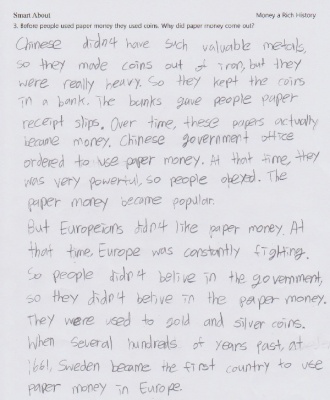 Smart About
Money a Rich History
3. Before people used paper money they used coins. Why did paper money come out?
Chinese didn4 have such valuable metals,
so they made coins out of iron, but they
were really heavy. So they kept the coins
in a bank. The banks gave people paper
receipt slips. Over time, these papers actually
became money. Chinese government office
ordered to use paper money. At that time, they
was very powerful, so people obeyed. The
paper money became popular.
But Europeions didn4 like paper money. At
that time, Europe was constantly fighting.
So people didn4 belive in the government,
so they didn4 belive in the paper money.
They were used to gold and silver coins.
When several hundreds of years past, at
1661, Sweden became the first country to use
paper money in Europe.